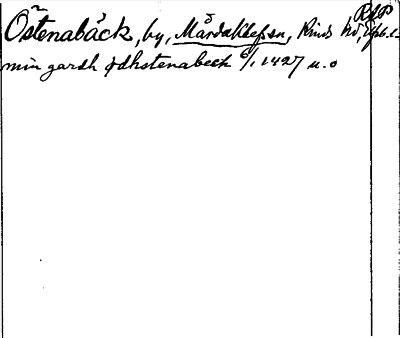 RAP
Östenabäck, by, Mårdaklefsn, Kinds hd, Elfsb. l.
min gardh ødhstenabeck 6/1 1427 u. o